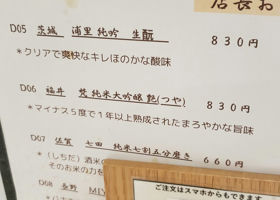 店長お
D05 茨城 浦里 純吟 生酛 830円
*クリアで爽快なキレほのかな酸味
D06 福井 梵 純米大吟醸 艶(つや) 830円
*マイナス5度で1年以上熟成されたまろやかな旨味
D07 佐賀 七田 純米七割五分磨き 660円
*(しちだ)酒米の
そのお米の力を
D08 長野
ご注文はスマホからもできます